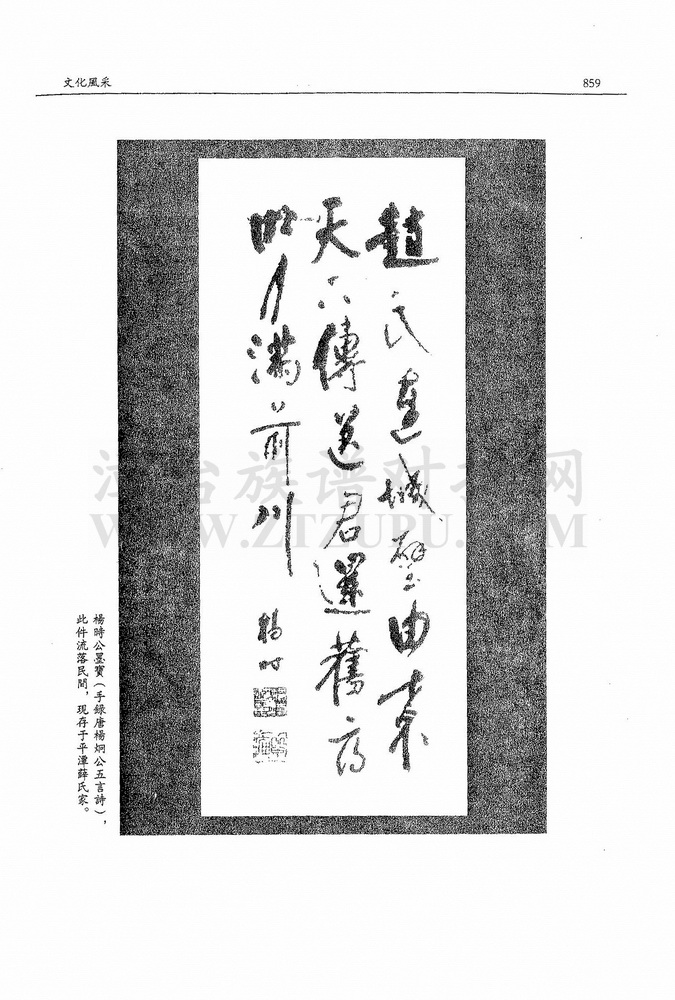 文化風采
859
趙氏連城璧由來
天下傳送君還舊府
明月滿前川
楊時
楊時公墨寶(手錄唐楊炯公五言詩),
此件流落民間,現存于平潭薛氏家。
WWW.ZTZUPU.COM